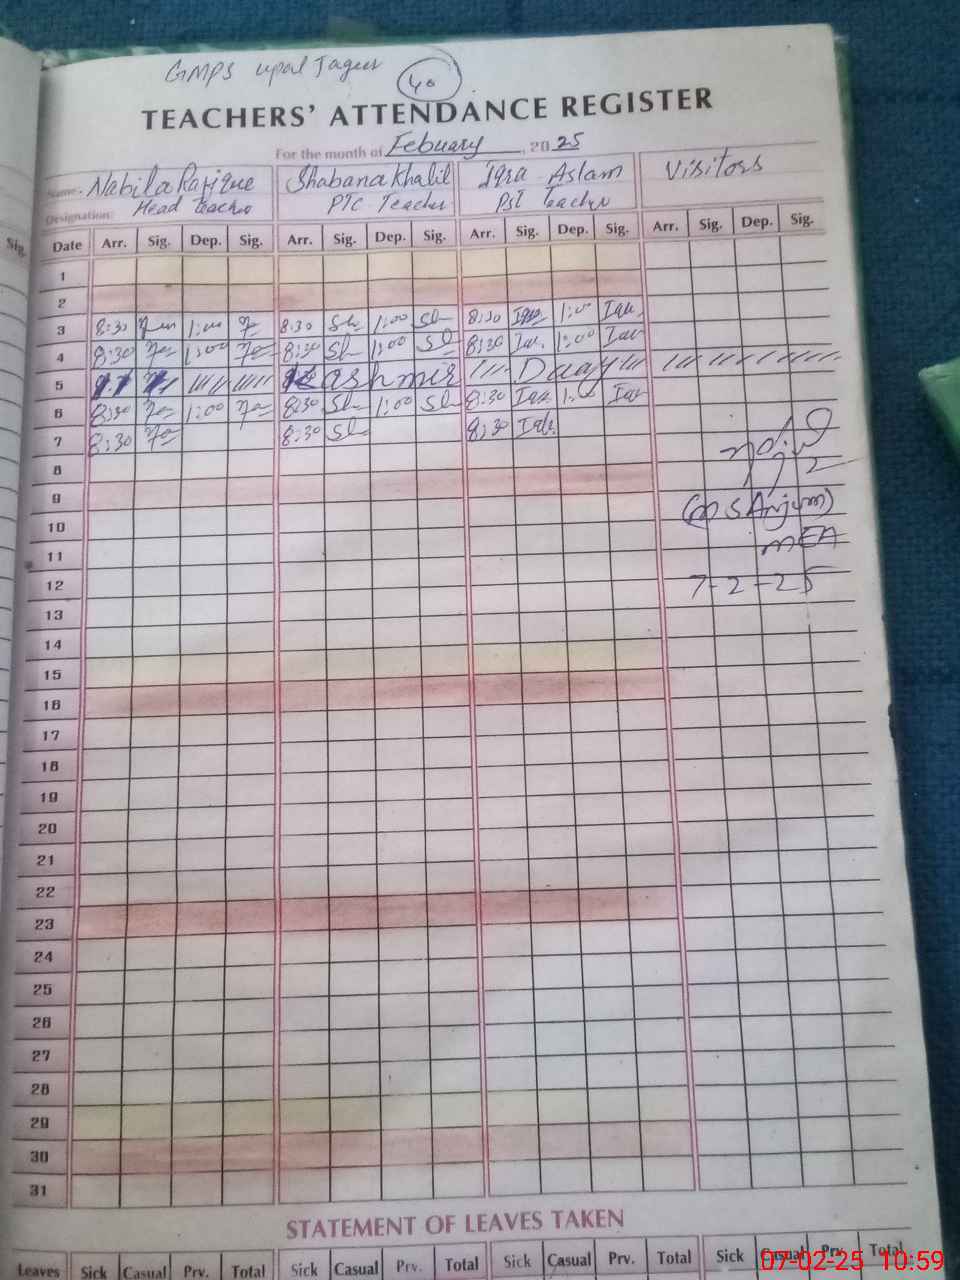 GMPS upal Jageer 40
TEACHERS' ATTENDANCE REGISTER
For the month of Febuary, 2025
Name. Nabila Rafique Shabana Khalil Iqra Aslam Visitors
Designation: Head Teacher PTC Teacher PST Teacher
Sig.
Date Arr. Sig. Dep. Sig. Arr. Sig. Dep. Sig. Arr. Sig. Dep. Sig. Arr. Sig. Dep. Sig.
1
2
3 8:30 1:00 8:30 Sh 1:00 Sh 8:30 Iqra 1:00 Iqra
4 8:30 1:00 8:30 Sh 1:00 Sh 8:30 Iqra 1:00 Iqra
5 Kashmir Day
6 8:30 1:00 8:30 Sh 1:00 Sh 8:30 Iqra Iqra
7 8:30 8:30 Sh 8:30 Iqra
8
9
10 (M S Anjum)
11 MEA
12 7-2-25
13
14
15
16
17
18
19
20
21
22
23
24
25
26
27
28
29
30
31
STATEMENT OF LEAVES TAKEN
Leaves Sick Casual Prv. Total Sick Casual Prv. Total Sick Casual Prv. Total Sick Casual Prv. Total
07-02-25 10:59